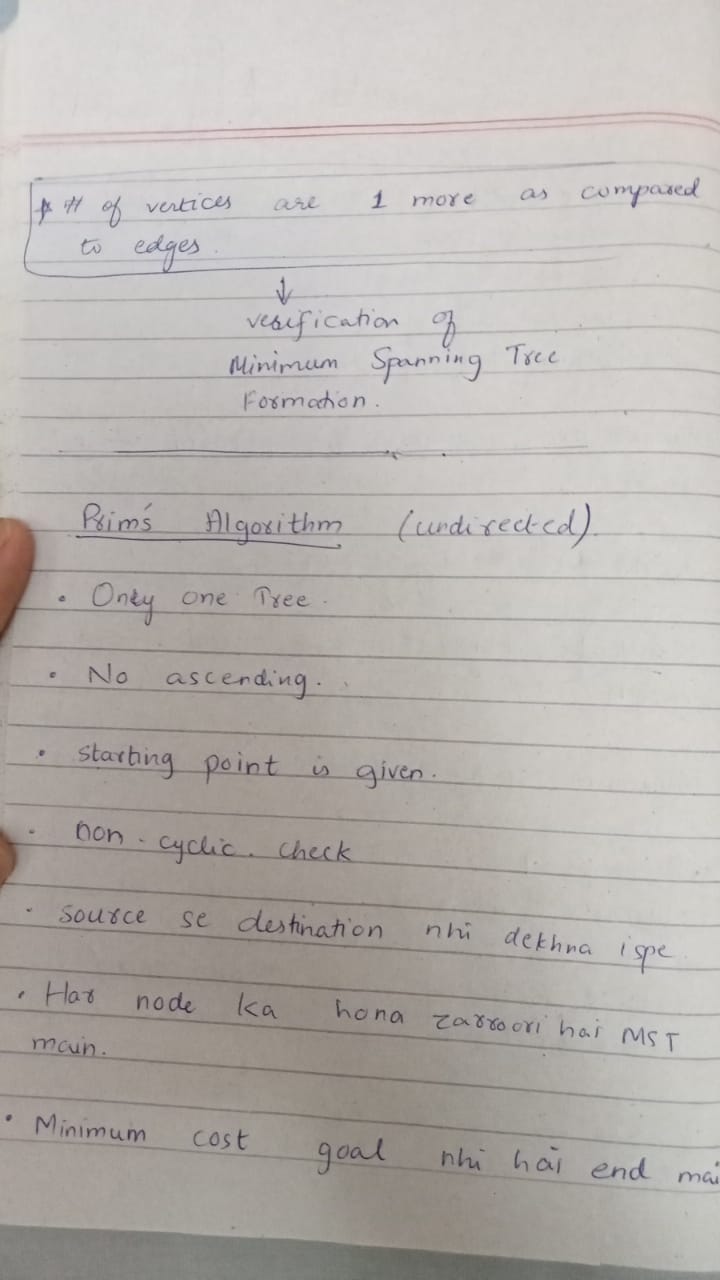 * # of vertices are 1 more as compared
to edges.
↓
verification of
Minimum Spanning Tree
Formation.
Prim's Algorithm (undirected)
• Only one Tree.
• No ascending.
• starting point is given.
• non-cyclic. check
• source se destination nhi dekhna ispe
• Har node ka hona zarroori hai MST
main.
• Minimum cost goal nhi hai end mai